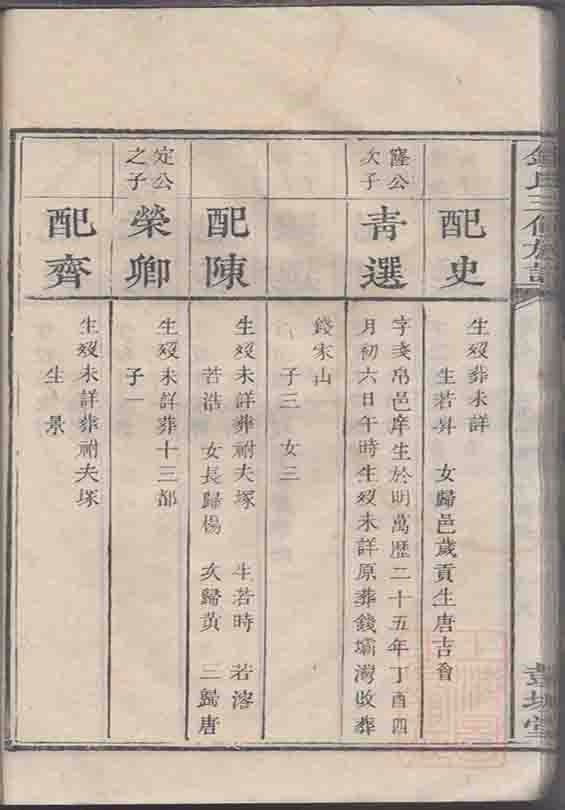 配史
生歿葬未詳
生若昇 女歸邑歲貢生唐吉會
窿公
次子
靑選
字愛帛邑庠生於明萬歷二十五年丁酉四
月初六日午時生歿未詳原葬錢壩灣改葬
錢家山
子三 女三
配陳
生歿未詳葬祔夫塚 生若時 若溶
若浩 女長歸楊 次歸黃 三歸唐
定公
之子
榮卿
生歿未詳葬十三都
子一
配齊
生歿未詳葬祔夫塚
生景